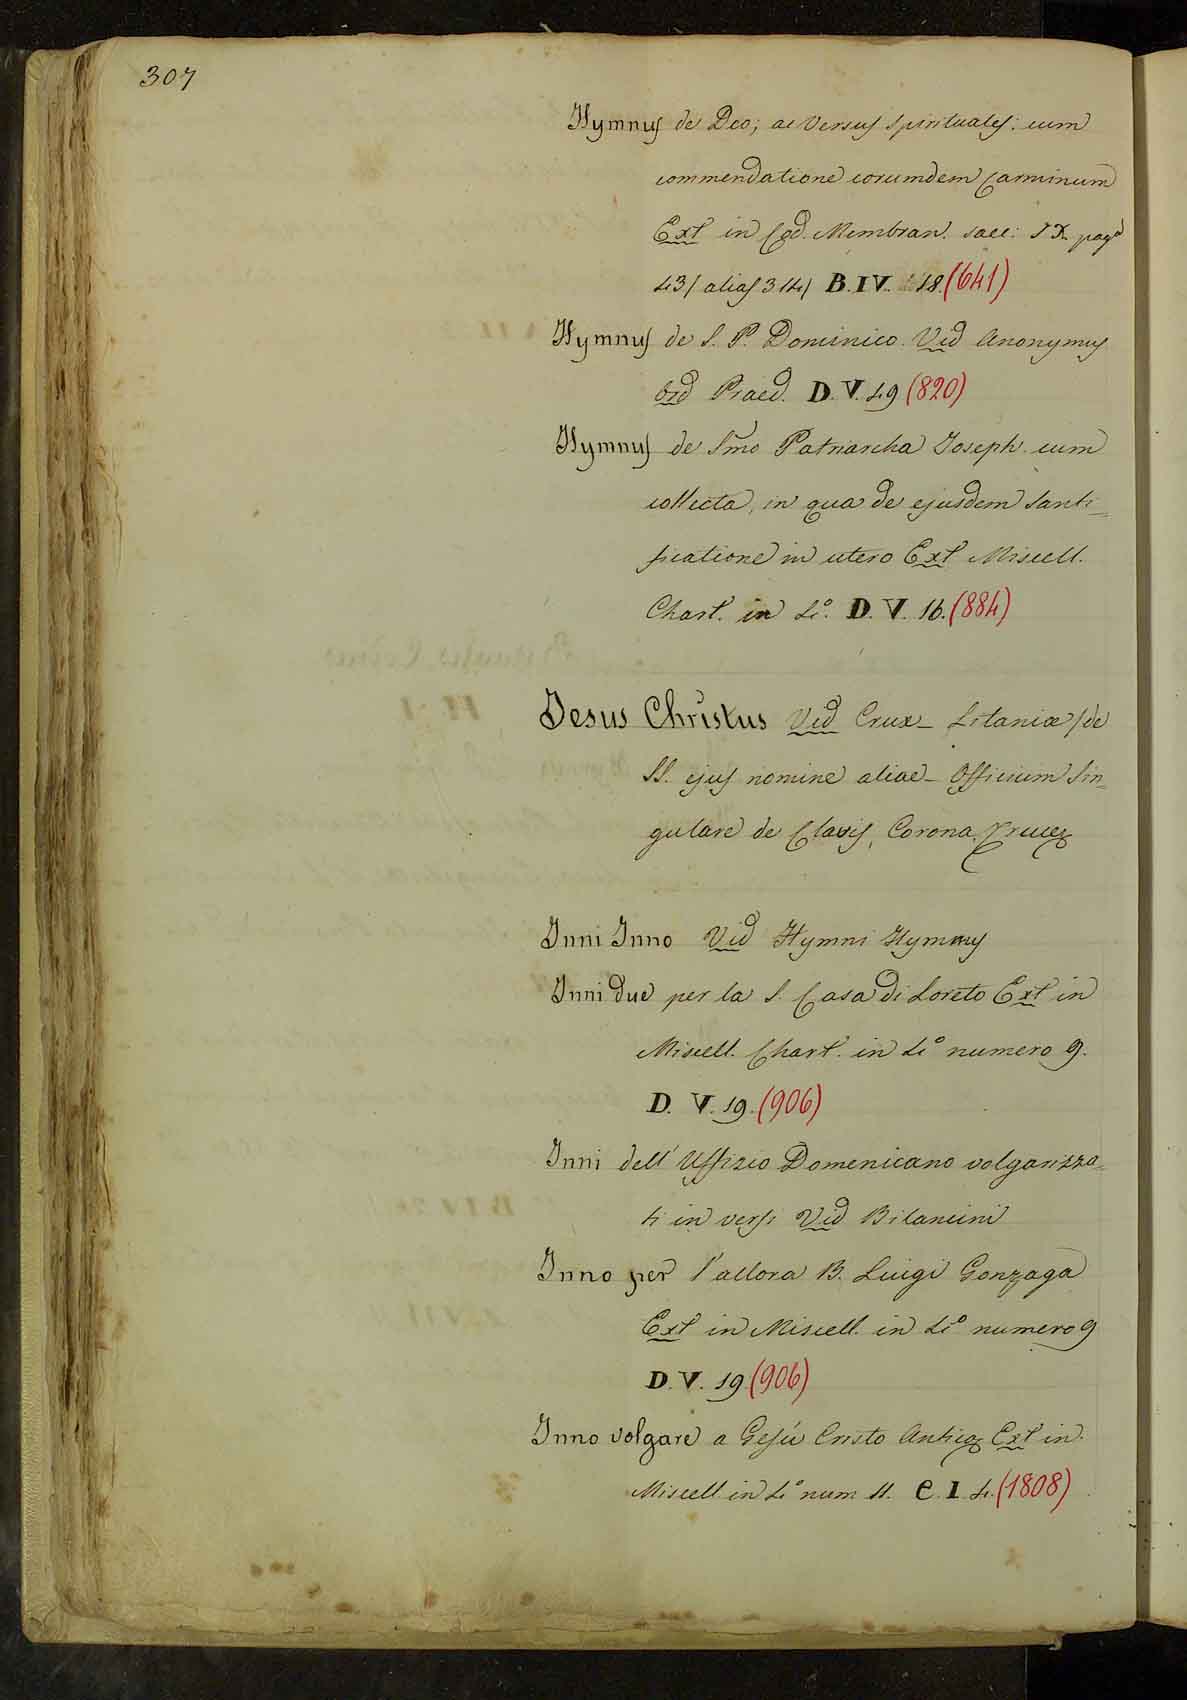 307
Hymnus de Deo; ac Versus Spirituales: cum
commendatione eorumdem Carminum
Ext in Cod. Membran. saec: IX. pagª
43/ alias 314/ B. IV. 18. (641)
Hymnus de S. P. Dominico. Vid Anonymus
Ord Praed. D. V. 49 (820)
Hymnus de Smo Patriarcha Joseph cum
collecta, in qua de ejusdem Santi=
ficatione in utero Ext Miscell.
Chart. in 4º. D. V. 16. (884)
Jesus Christus Vid Crux_ Litaniæ /de
SS. ejus nomine aliae_ Officium Sin=
gulare de Clavis, Corona,
Inni Inno Vid Hymni Hymnus
Inni due per la S. Casa di Loreto Ext in
Miscell. Chart. in 4º numero 9.
D. V. 19. (906)
Inni dell' Uffizio Domenicano volgarizza=
ti in versi Vid Bilancini
Inno per l'allora B. Luigi Gonzaga
Ext in Miscell. in 4º numero 9
D. V. 19 (906)
Inno volgare a Gesù Cristo Ext in
Miscell in 4º num 11. C. I. 4. (1808)